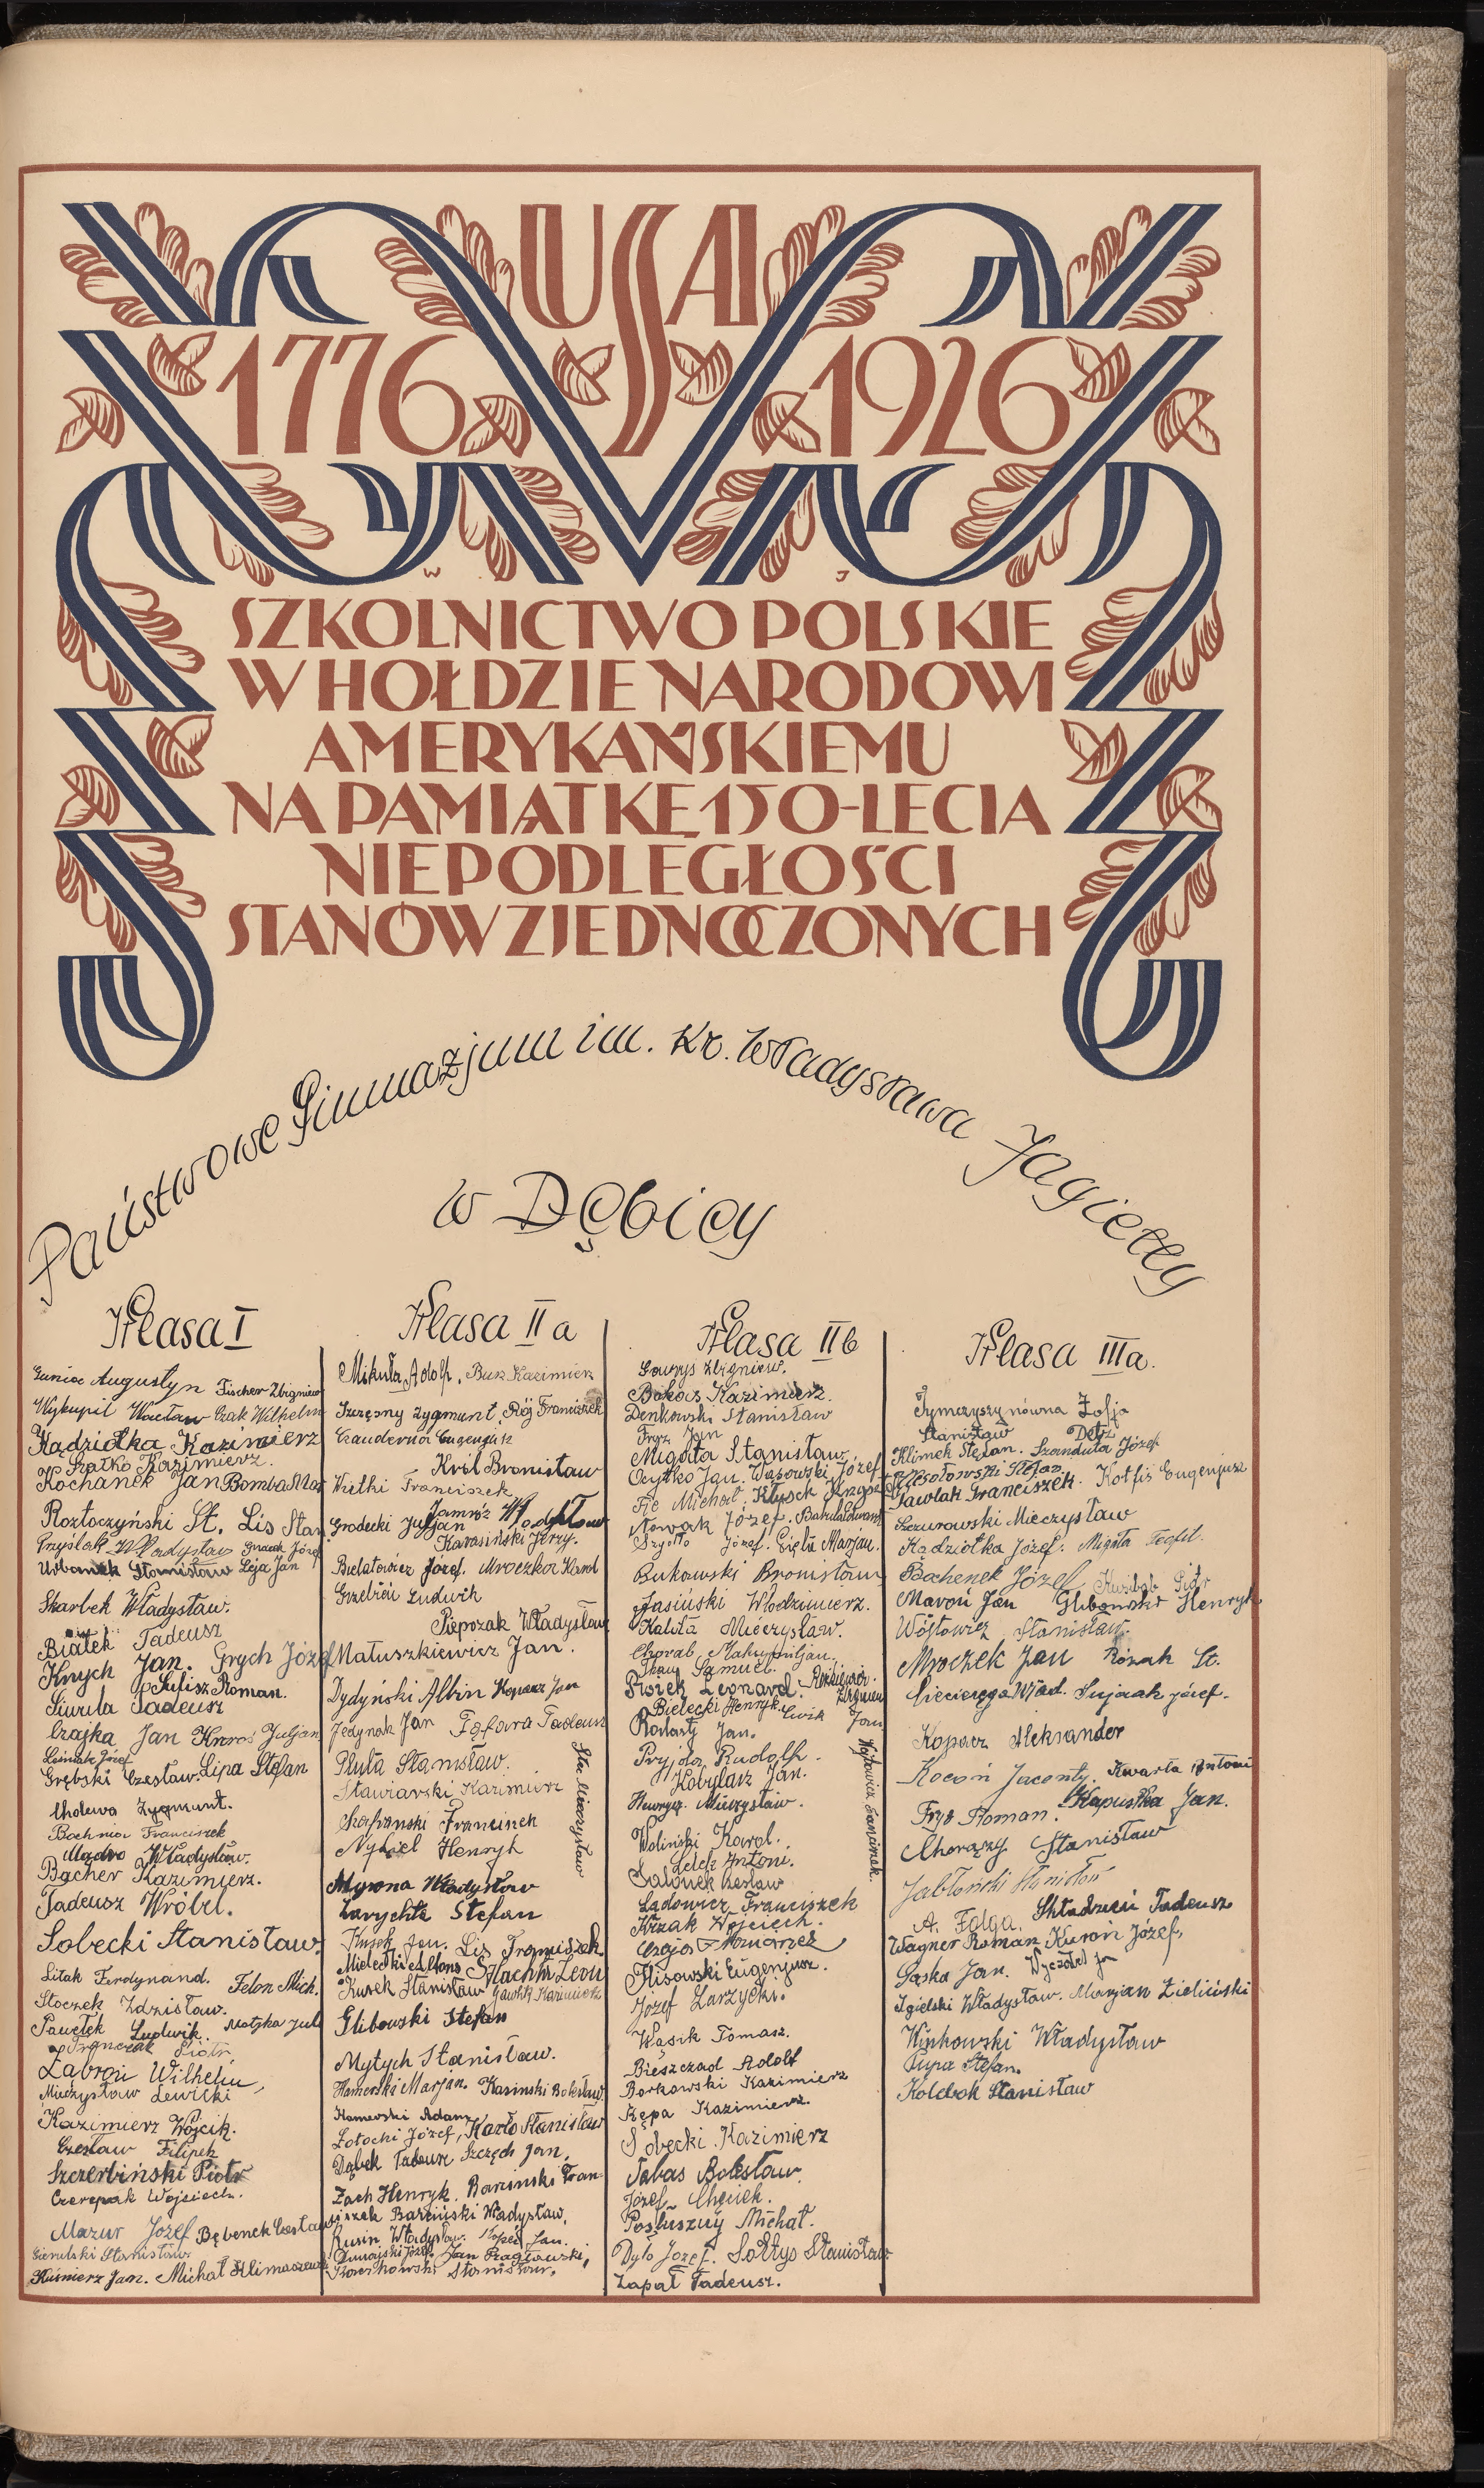 USA
1776 1926
W J
SZKOLNICTWO POLSKIE
W HOŁDZIE NARODOWI
AMERYKAŃSKIEMU
NA PAMIĄTKĘ 150-LECIA
NIEPODLEGŁOŚCI
STANÓW ZJEDNOCZONYCH
Państwowe Gimnazjum im. Kr. Władysława Jagiełły
w Dębicy
Klasa I
Augustyn Fischer Zbigniew
Wykupil Wacław Czak Wilhelm
Kądziołka Kazimierz
Szatko Kazimierz.
Kochanek Jan Bomba
Roztoczyński St. Lis Stan
Przyślak Władysław Józef
Urbanek Stanisław Leja Jan
Skarbek Władysław.
Białek Tadeusz
Knych Jan. Grych Józef
Sulisz Roman.
Siwula Tadeusz
Czajka Jan Knaroś Juljan
Leśniak Józef
Grębski Czesław. Lipa Stefan
Cholewa Zygmunt.
Bochnia Franciszek
Mądro Władysław.
Bącher Kazimierz.
Tadeusz Wróbel.
Sobecki Stanisław.
Litak Ferdynand. Felon Mich.
Stoczek Zdzisław.
Pawełek Ludwik. Matyka Jul
Franczak Piotr
Zabroń Wilhelm,
Mieczysław Lewicki
Kazimierz Wójcik.
Czesław Filipek
Szczerbiński Piotr
Czerepak Wojciech.
Mazur Józef Bębenek Czesław
Stanisław.
Kuśnierz Jan. Michał Klimaszewski
Klasa II a
Mikuła Adolf. Busz Kazimierz
Szczęsny Zygmunt, Rój Franciszek
Czauderna Eugenjusz
Król Bronisław
Witki Franciszek
Jamróz Władysław
Grodecki Juljan
Karasiński Jerzy.
Bielatowicz Józef. Mroczka Karol
Grzebień Ludwik
Pieprzak Władysław
Matuszkiewicz Jan.
Dydyński Albin Kopacz Jan
Jedynak Jan Fąfara Tadeusz
Pluta Stanisław.
Stawiarski Kazimierz
Szafrański Franciszek
Nykiel Henryk
Mieczysław
Myrona Władysław
Zarychta Stefan
Kusek Jan. Lis Franciszek.
Mielecki Alfons Szlachta Leon
Kusek Stanisław Gawlik Kazimierz
Glibowski Stefan
Mytych Stanisław.
Hamerski Marjan. Kasinski Bolesław.
Komorski Adam
Zołocki Józef, Karło Stanisław
Dąbek Tadeusz Szczęch Jan,
Zach Henryk. Barcinski Fran-
ciszek Barciński Władysław,
Rusin Władysław. Kopeć Jan.
Dunajski Józef. Jan Ragiawski,
Borenkowski Stanisław.
Klasa II b
Gawryś Zbigniew.
Bakoś Kazimierz.
Denkowski Stanisław
Fryz Jan
Migała Stanisław
Ocytko Jan. Wąsowski Józef
Fic Michał, Kłysek
Nowak Józef. Bakula Edward
Szydło Józef. Cięła Marjan.
Bukowski Bronisław
Jasiński Włodzimierz.
Kalita Mieczysław.
Chorab Maksymiljan.
Samuel.
Piołek Leonard. Rokiewicz
Zbigniew
Bielecki Henryk. Ćwik Jan
Radasty Jan.
Pryjda Rudolf.
Kobylarz Jan.
Wójtowicz Franciszek.
Henryk. Mieczysław.
Woliński Karol.
Lelek Antoni.
Salonek Czesław
Ladowicz Franciszek
Krzak Wojciech.
Czaja Franciszek
Flisowski Eugenjusz.
Józef Zarzycki.
Wąsik Tomasz.
Bieszczad Adolf
Borkowski Kazimierz
Kępa Kazimierz.
Sobecki Kazimierz
Tabas Bolesław.
Józef Chęciek.
Posłuszny Michał.
Dydo Józef. Sołtys Stanisław
Zapał Tadeusz.
Klasa III a.
Tymczyszynówna Zofja
Stanisław
Klimek Stefan. Szanduła Józef
Wesołowski Stefan
Pawlak Franciszek. Kotfis Eugenjusz
Szczurowski Mieczysław
Kądziołka Józef. Migała Teofil.
Bachenek Józef Kuzibab Piotr
Maroń Jan Glibowski Henryk
Wójtowicz Stanisław.
Mroczek Jan Rózak St.
Cieciersga Wład. Sujzak Józef.
Kopacz Aleksander
Kocoń Jaconty. Kwarta Antoni
Fryś Roman. Kapustka Jan.
Chorąży Stanisław
Jabłoński Stanisław
A. Folga. Składzień Tadeusz
Wagner Roman Kuroń Józef,
Gąska Jan.
Igielski Władysław. Marjan Zieliński
Winkowski Władysław
Pupa Stefan.
Kolbok Stanisław